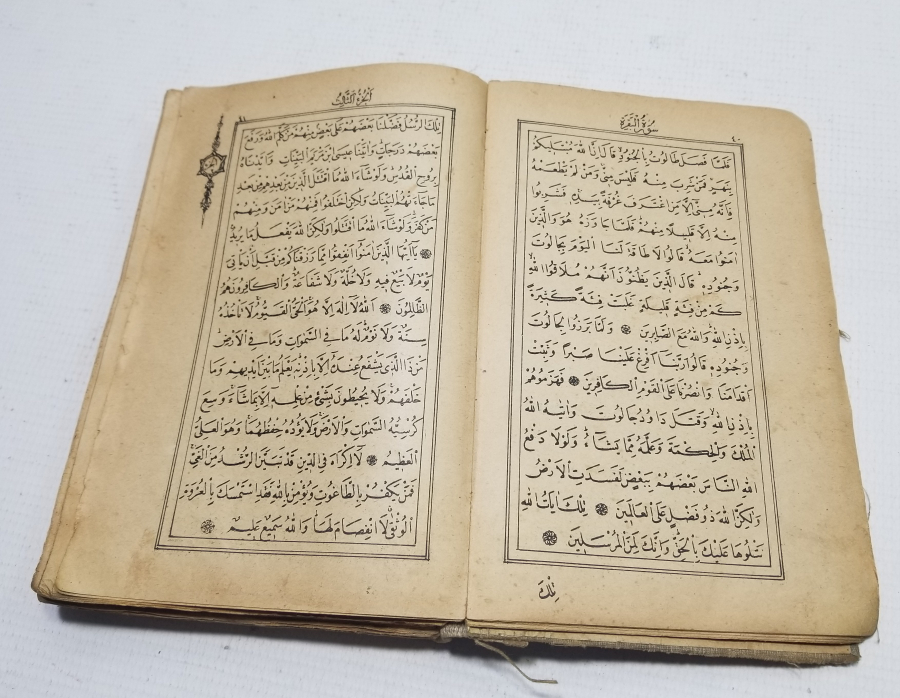 سورة البقرة
٤٠
فَلَمَّا فَصَلَ طَالُوتُ بِالْجُنُودِ قَالَ اِنَّ اللّٰهَ مُبْتَلٖيكُمْ
بِنَهَرٍ فَمَنْ شَرِبَ مِنْهُ فَلَيْسَ مِنّٖي وَمَنْ لَمْ يَطْعَمْهُ
فَاِنَّهُ مِنّٖي اِلَّا مَنِ اغْتَرَفَ غُرْفَةً بِيَدِهٖ فَشَرِبُوا
مِنْهُ اِلَّا قَلٖيلًا مِنْهُمْ فَلَمَّا جَاوَزَهُ هُوَ وَالَّذٖينَ
اٰمَنُوا مَعَهُ قَالُوا لَا طَاقَةَ لَنَا الْيَوْمَ بِجَالُوتَ
وَجُنُودِهٖ قَالَ الَّذٖينَ يَظُنُّونَ اَنَّهُمْ مُلَاقُوا اللّٰهِ
كَمْ مِنْ فِئَةٍ قَلٖيلَةٍ غَلَبَتْ فِئَةً كَثٖيرَةً
بِاِذْنِ اللّٰهِ وَاللّٰهُ مَعَ الصَّابِرٖينَ وَلَمَّا بَرَزُوا لِجَالُوتَ
وَجُنُودِهٖ قَالُوا رَبَّنَا اَفْرِغْ عَلَيْنَا صَبْرًا وَثَبِّتْ
اَقْدَامَنَا وَانْصُرْنَا عَلَى الْقَوْمِ الْكَافِرٖينَ فَهَزَمُوهُمْ
بِاِذْنِ اللّٰهِ وَقَتَلَ دَاوُدُ جَالُوتَ وَاٰتٰيهُ اللّٰهُ
الْمُلْكَ وَالْحِكْمَةَ وَعَلَّمَهُ مِمَّا يَشَاءُ وَلَوْلَا دَفْعُ
اللّٰهِ النَّاسَ بَعْضَهُمْ بِبَعْضٍ لَفَسَدَتِ الْاَرْضُ
وَلٰكِنَّ اللّٰهَ ذُو فَضْلٍ عَلَى الْعَالَمٖينَ تِلْكَ اٰيَاتُ اللّٰهِ
نَتْلُوهَا عَلَيْكَ بِالْحَقِّ وَاِنَّكَ لَمِنَ الْمُرْسَلٖينَ
تِلْكَ
الجزء الثالث
تِلْكَ الرُّسُلُ فَضَّلْنَا بَعْضَهُمْ عَلٰى بَعْضٍ مِنْهُمْ مَنْ كَلَّمَ اللّٰهُ وَرَفَعَ
بَعْضَهُمْ دَرَجَاتٍ وَاٰتَيْنَا عٖيسَى ابْنَ مَرْيَمَ الْبَيِّنَاتِ وَاَيَّدْنَاهُ
بِرُوحِ الْقُدُسِ وَلَوْ شَاءَ اللّٰهُ مَا اقْتَتَلَ الَّذٖينَ مِنْ بَعْدِهِمْ مِنْ بَعْدِ
مَا جَاءَتْهُمُ الْبَيِّنَاتُ وَلٰكِنِ اخْتَلَفُوا فَمِنْهُمْ مَنْ اٰمَنَ وَمِنْهُمْ
مَنْ كَفَرَ وَلَوْ شَاءَ اللّٰهُ مَا اقْتَتَلُوا وَلٰكِنَّ اللّٰهَ يَفْعَلُ مَا يُرٖيدُ
يَا اَيُّهَا الَّذٖينَ اٰمَنُوا اَنْفِقُوا مِمَّا رَزَقْنَاكُمْ مِنْ قَبْلِ اَنْ يَاْتِيَ
يَوْمٌ لَا بَيْعٌ فٖيهِ وَلَا خُلَّةٌ وَلَا شَفَاعَةٌ وَالْكَافِرُونَ هُمُ
الظَّالِمُونَ اَللّٰهُ لَا اِلٰهَ اِلَّا هُوَ الْحَيُّ الْقَيُّومُ لَا تَاْخُذُهُ
سِنَةٌ وَلَا نَوْمٌ لَهُ مَا فِي السَّمٰوَاتِ وَمَا فِي الْاَرْضِ
مَنْ ذَا الَّذٖي يَشْفَعُ عِنْدَهُ اِلَّا بِاِذْنِهٖ يَعْلَمُ مَا بَيْنَ اَيْدٖيهِمْ وَمَا
خَلْفَهُمْ وَلَا يُحٖيطُونَ بِشَيْءٍ مِنْ عِلْمِهٖ اِلَّا بِمَا شَاءَ وَسِعَ
كُرْسِيُّهُ السَّمٰوَاتِ وَالْاَرْضَ وَلَا يَؤُدُهُ حِفْظُهُمَا وَهُوَ الْعَلِيُّ
الْعَظٖيمُ لَا اِكْرَاهَ فِي الدّٖينِ قَدْ تَبَيَّنَ الرُّشْدُ مِنَ الْغَيِّ
فَمَنْ يَكْفُرْ بِالطَّاغُوتِ وَيُؤْمِنْ بِاللّٰهِ فَقَدِ اسْتَمْسَكَ بِالْعُرْوَةِ
الْوُثْقٰى لَا انْفِصَامَ لَهَا وَاللّٰهُ سَمٖيعٌ عَلٖيمٌ